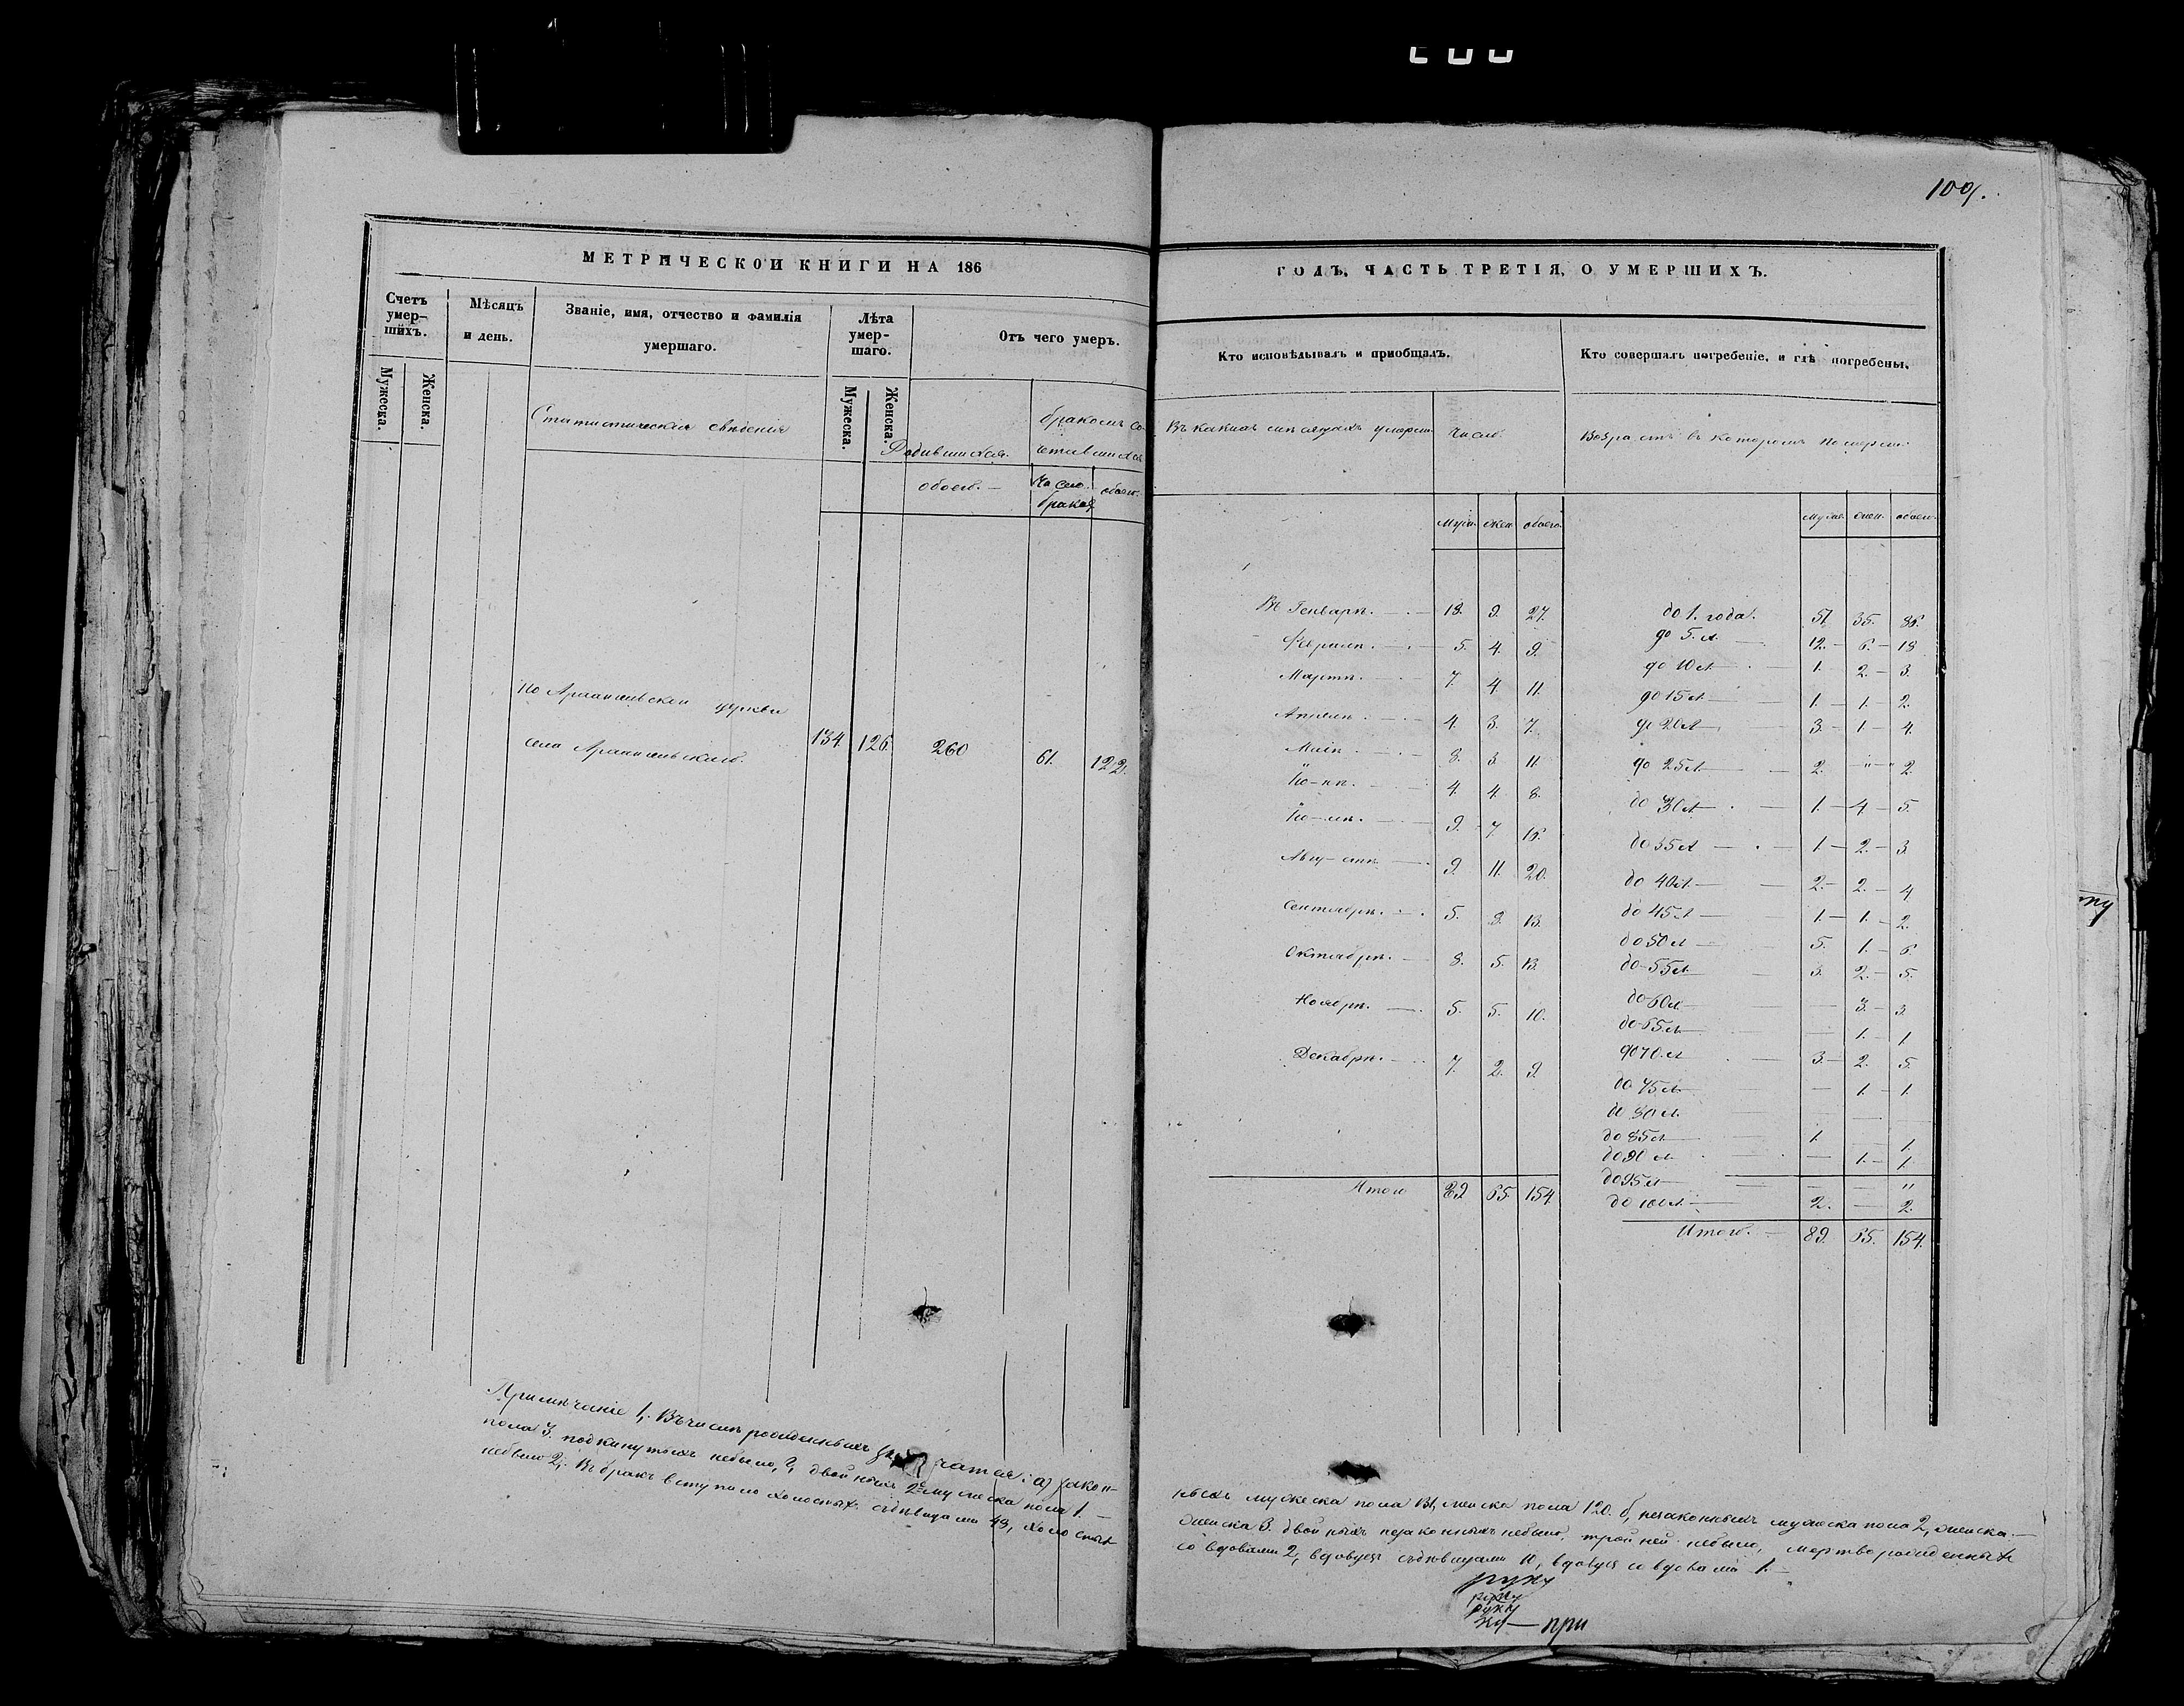 109.
МЕТРИЧЕСКОЙ КНИГИ НА 186
Счетъ умер-шихъ.
Мужеска.
Женска.
Мѣсяцъ и день.
Званіе, имя, отчество и фамилія умершаго.
Лѣта умер-шаго.
Мужеска.
Женска.
Отъ чего умеръ.
Статистическія свѣденія
Родившихся.
бракомъ со-
четавшихся
обоего. —
Число браков
обоего.
По церкви
села
134. 126. 260 61. 122.
Примѣчаніе 1, Въ числѣ рожденныхъ : а) закон-
пола 3. подкинутыхъ небыло, двойныхъ 2 мужеска пола 1. —
небыло 2, Въ бракъ вступило холостых съ дѣвицами 48, холостых
ГОДЪ, ЧАСТЬ ТРЕТІЯ, О УМЕРШИХЪ.
Кто исповѣдывалъ и пріобщалъ.
Кто совершалъ погребеніе, и гдѣ погребены.
Въ какихъ мѣсяцахъ умерли
Число.
Возрастъ въ которомъ померли
Муж. Жен. обоего.
Муже. жен. обоего.
Въ Генварѣ. — 18. 9. 27.
Февралѣ. — 5. 4. 9.
Мартѣ. 7. 4. 11.
Апрелѣ. — 4. 3. 7.
Маіѣ 8. 3. 11.
Ію-нѣ. 4. 4. 8.
Ію-лѣ. — 9. 7. 16.
Авгу-стѣ — 9. 11. 20.
Сентябрѣ. 5. 8. 13.
Октябрѣ. — 8. 5. 13.
Ноябрѣ. — 5. 5. 10.
Декабрѣ. — 7. 2. 9.
Итого 89 65 154
до 1. года. 51 35. 86.
до 5. л. 12. — 6. — 18
до 10 л. — 1 — 2. — 3.
до 15 л. 1. — 1. — 2.
до 20 л. 3. — 1. — 4.
до 25 л. — 2. — " — 2.
до 30 л. — 1. — 4 — 5.
до 35 л — 1 — 2. — 3.
до 40 л. — 2. — 2. — 4
до 45 л — 1. — 1. — 2.
до 50 л — 5. 1. — 6.
до 55 л. — 3. 2. — 5.
до 60 л — — 3. — 3.
до 65 л. — 1. — 1
до 70. л — 3. — 2. 5.
до 75 л. — — 1. — 1.
до 80 л.
до 85 л 1. 1.
до 90 л. — 1. — 1.
до 95 л — — "
до 100 л. — 2. — 2.
Итого. — 89. 65. 154.
ныхъ мужеска пола 131, женска пола 120. б, незаконныхъ мужеска пола 2, женска —
женска 3. двойныхъ незаконныхъ небыло, тройней небыло, мертворожденныхъ
со вдовами 2, вдовцев съ дѣвицами 10, вдовцев со вдовами 1. —
руку
руку
руку
— при